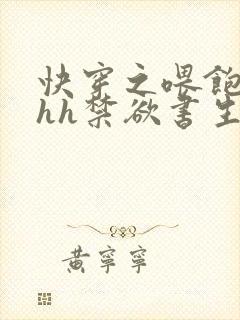 快穿之喂飽
hh禁欲書生
黃寧寧